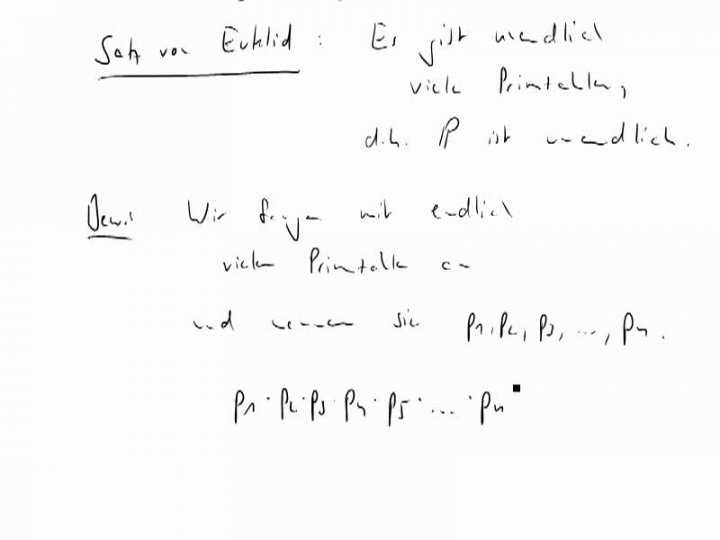 Satz von Euklid : Es gibt unendlich
viele Primzahlen,
d.h. ℙ ist unendlich.
Beweis Wir fangen mit endlich
vielen Primzahlen an
und nennen sie p1, p2, p3, ..., pn.
p1 · p2 · p3 · p4 · p5 · ... · pn